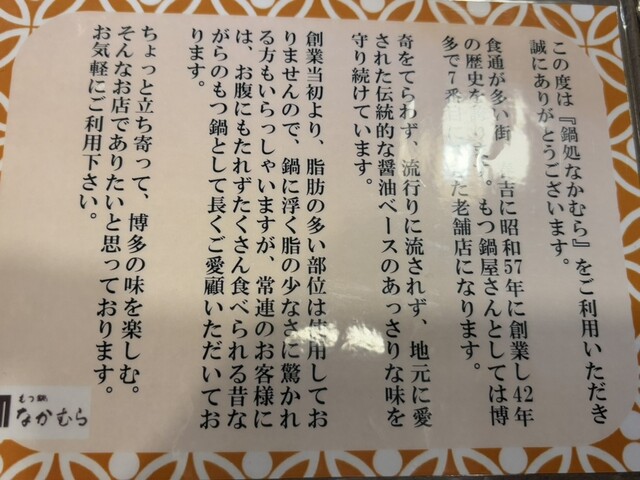 この度は『鍋処なかむら』をご利用いただき
誠にありがとうございます。
食通が多い街 吉に昭和57年に創業し42年
の歴史を 。もつ鍋屋さんとしては博
多で7番 た老舗店になります。
奇をてらわず、流行りに流されず、地元に愛
された伝統的な醤油ベースのあっさりな味を
守り続けています。
創業当初より、脂肪の多い部位は使用してお
りませんので、鍋に浮く脂の少なさに驚かれ
る方もいらっしゃいますが、常連のお客様に
は、お腹にもたれずたくさん食べられる昔な
がらのもつ鍋として長くご愛顧いただいてお
ります。
ちょっと立ち寄って、博多の味を楽しむ。
そんなお店でありたいと思っております。
お気軽にご利用下さい。
もつ鍋
なかむら